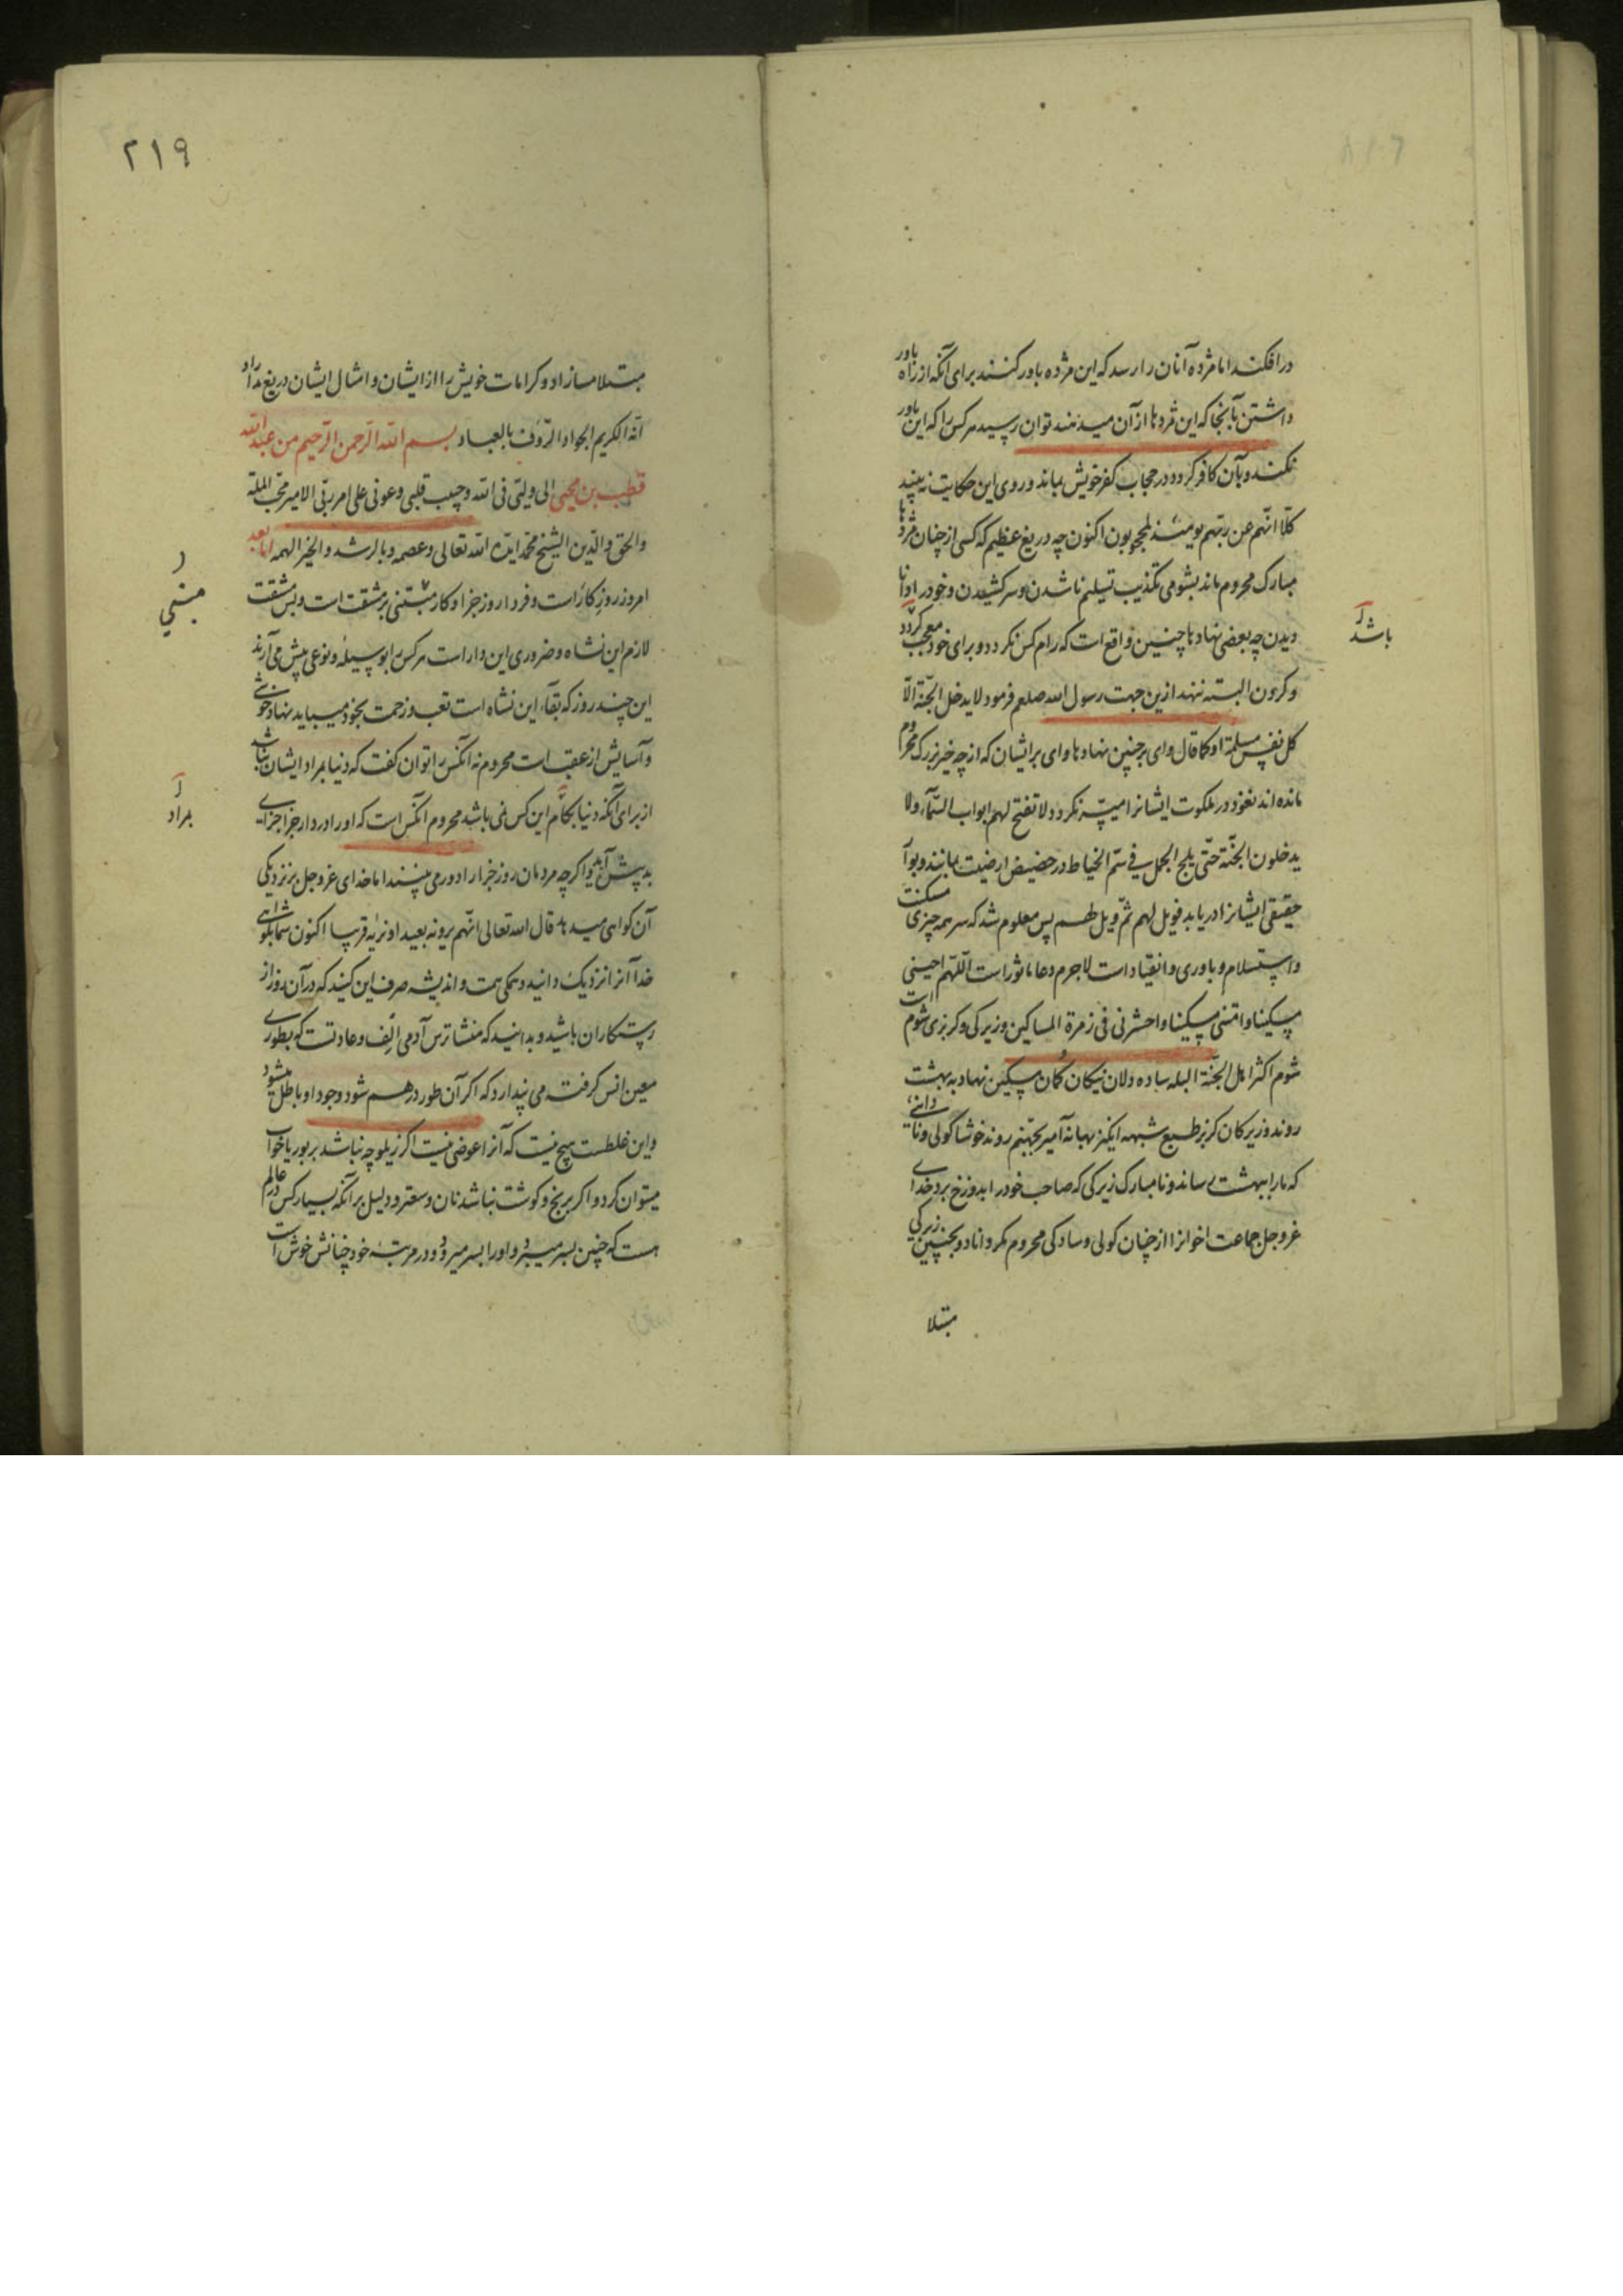 درافکند اما مژده آنان را رسد که این مژده باور کنند برای آنکه از راه باور
داشتن بآنجا که این مژدها از آن میدهند توان رسید هرکس را که این باور
نکند و بآن کافر گردد در حجاب کفر خویش بماند و روی این حکایت نه بیند
کلّا انّهم عن ربّهم یومئذ لمحجوبون اکنون چه دریغ عظیم که کسی از چنان مژدها
مبارک محروم ماند بشومی تکذیب تسلیم ناشدن و سرکشیدن و خود را دانا
دیدن چه بعضی نهادها چنین واقع است که رام کس نگردد و برای خود معجب گردد
باشد
و گردن البته ننهد ازین جهت رسول الله صلعم فرمود لایدخل الجنّة الّا
کل نفس مسلمة او کما قال وای بر چنین نهادها وای بر ایشان که از چه خیر بزرگ محروم
مانده اند نفوذ در ملکوت ایشانرا میسّر نگردد لا تفتح لهم ابواب السّمآء ولا
یدخلون الجنّة حتّی یلج الجمل فی سمّ الخیاط در حضیض ارضیت بمانند و بوآ
حقیقی ایشانرا دریابد فویل لهم ثمّ ویل لهم پس معلوم شد که سر همه چیزی مسکنت
و استسلام و باوری و انقیاد است لاجرم دعا ماثور است اللّهم احینی
مسکینا و امتنی مسکینا و احشرنی فی زمرة المساکین و زیرکی و گربزی شوم است
شوم اکثر اهل الجنّة البله ساده دلان نیکان گمان مسکین نهاد به بهشت
روند و زیرکان گربز طبع شبهه انگیز بهانه آمیز بجهنم روند خوشا گولی و نادانی
که ما را ببهشت رساند و نامبارک زیرکی که صاحب خود را بدوزخ برد خدای
عزوجل جماعت اخوانرا از چنان گولی و سادگی محروم مگرداناد و بچنین زیرکی
مبتلا
۲۱۹
مبتلا مسازاد و کرامات خویش را از ایشان و امثال ایشان دریغ مداراد
انّه الکریم الجواد الرّؤف بالعباد بسم الله الرّحمن الرّحیم من عبدالله
قطب بن محیی الی ولیّی فی الله وحبیب قلبی وعونی علی امر ربّی الامیر محب الملة
والحق والدّین الشیخ محمّد ایّده الله تعالی وعصمه وبالرشد والخیر الهمه امّا بعد
امروز روز کار است و فردا روز جزا و کار مبتنی بر مشقت است و بس مشقت
مبتنی
لازم این نشاه و ضروری این دار است هرکس را بوسیله و نوعی پیش می آرند
این چند روز که بقآء این نشاه است تعب و زحمت بخود میباید نهاد خوشی
و آسایش از عقب است محروم نه آنکس را توان گفت که دنیا بمراد ایشان نباشد
از برای آنکه دنیا بکام این کس نمی باشد محروم آنکس است که او را در دار جزا جزای
بمراد
بد پیش آید و اگرچه مردمان روز جزا را دور می بینند اما خدای عزوجل بر نزدیکی
آن گواهی میدهد قال الله تعالی انّهم یرونه بعیدا ونریه قریبا اکنون شما بگواهی
خدا آنرا نزدیک دانید و همگی همت و اندیشه صرف این کنید که در آن روز از
رستگاران باشید و بدانید که منشا ترس آدمی الف و عادتست که بطوری
معین انس گرفته می پندارد که اگر آن طور درهم شود وجود او باطل میشود
و این غلطست هیچ نیست که آنرا عوضی نیست اگر زیلوچه نباشد بر بوریا خواب
میتوان کرد و اگر برنج و گوشت نباشد نان و سعتر و دلیل بر آنکه بسیار کس در عالم
هست که چنین بسر میبرد و او را بسر میرود و در مرتبه خود چنانش خوش است